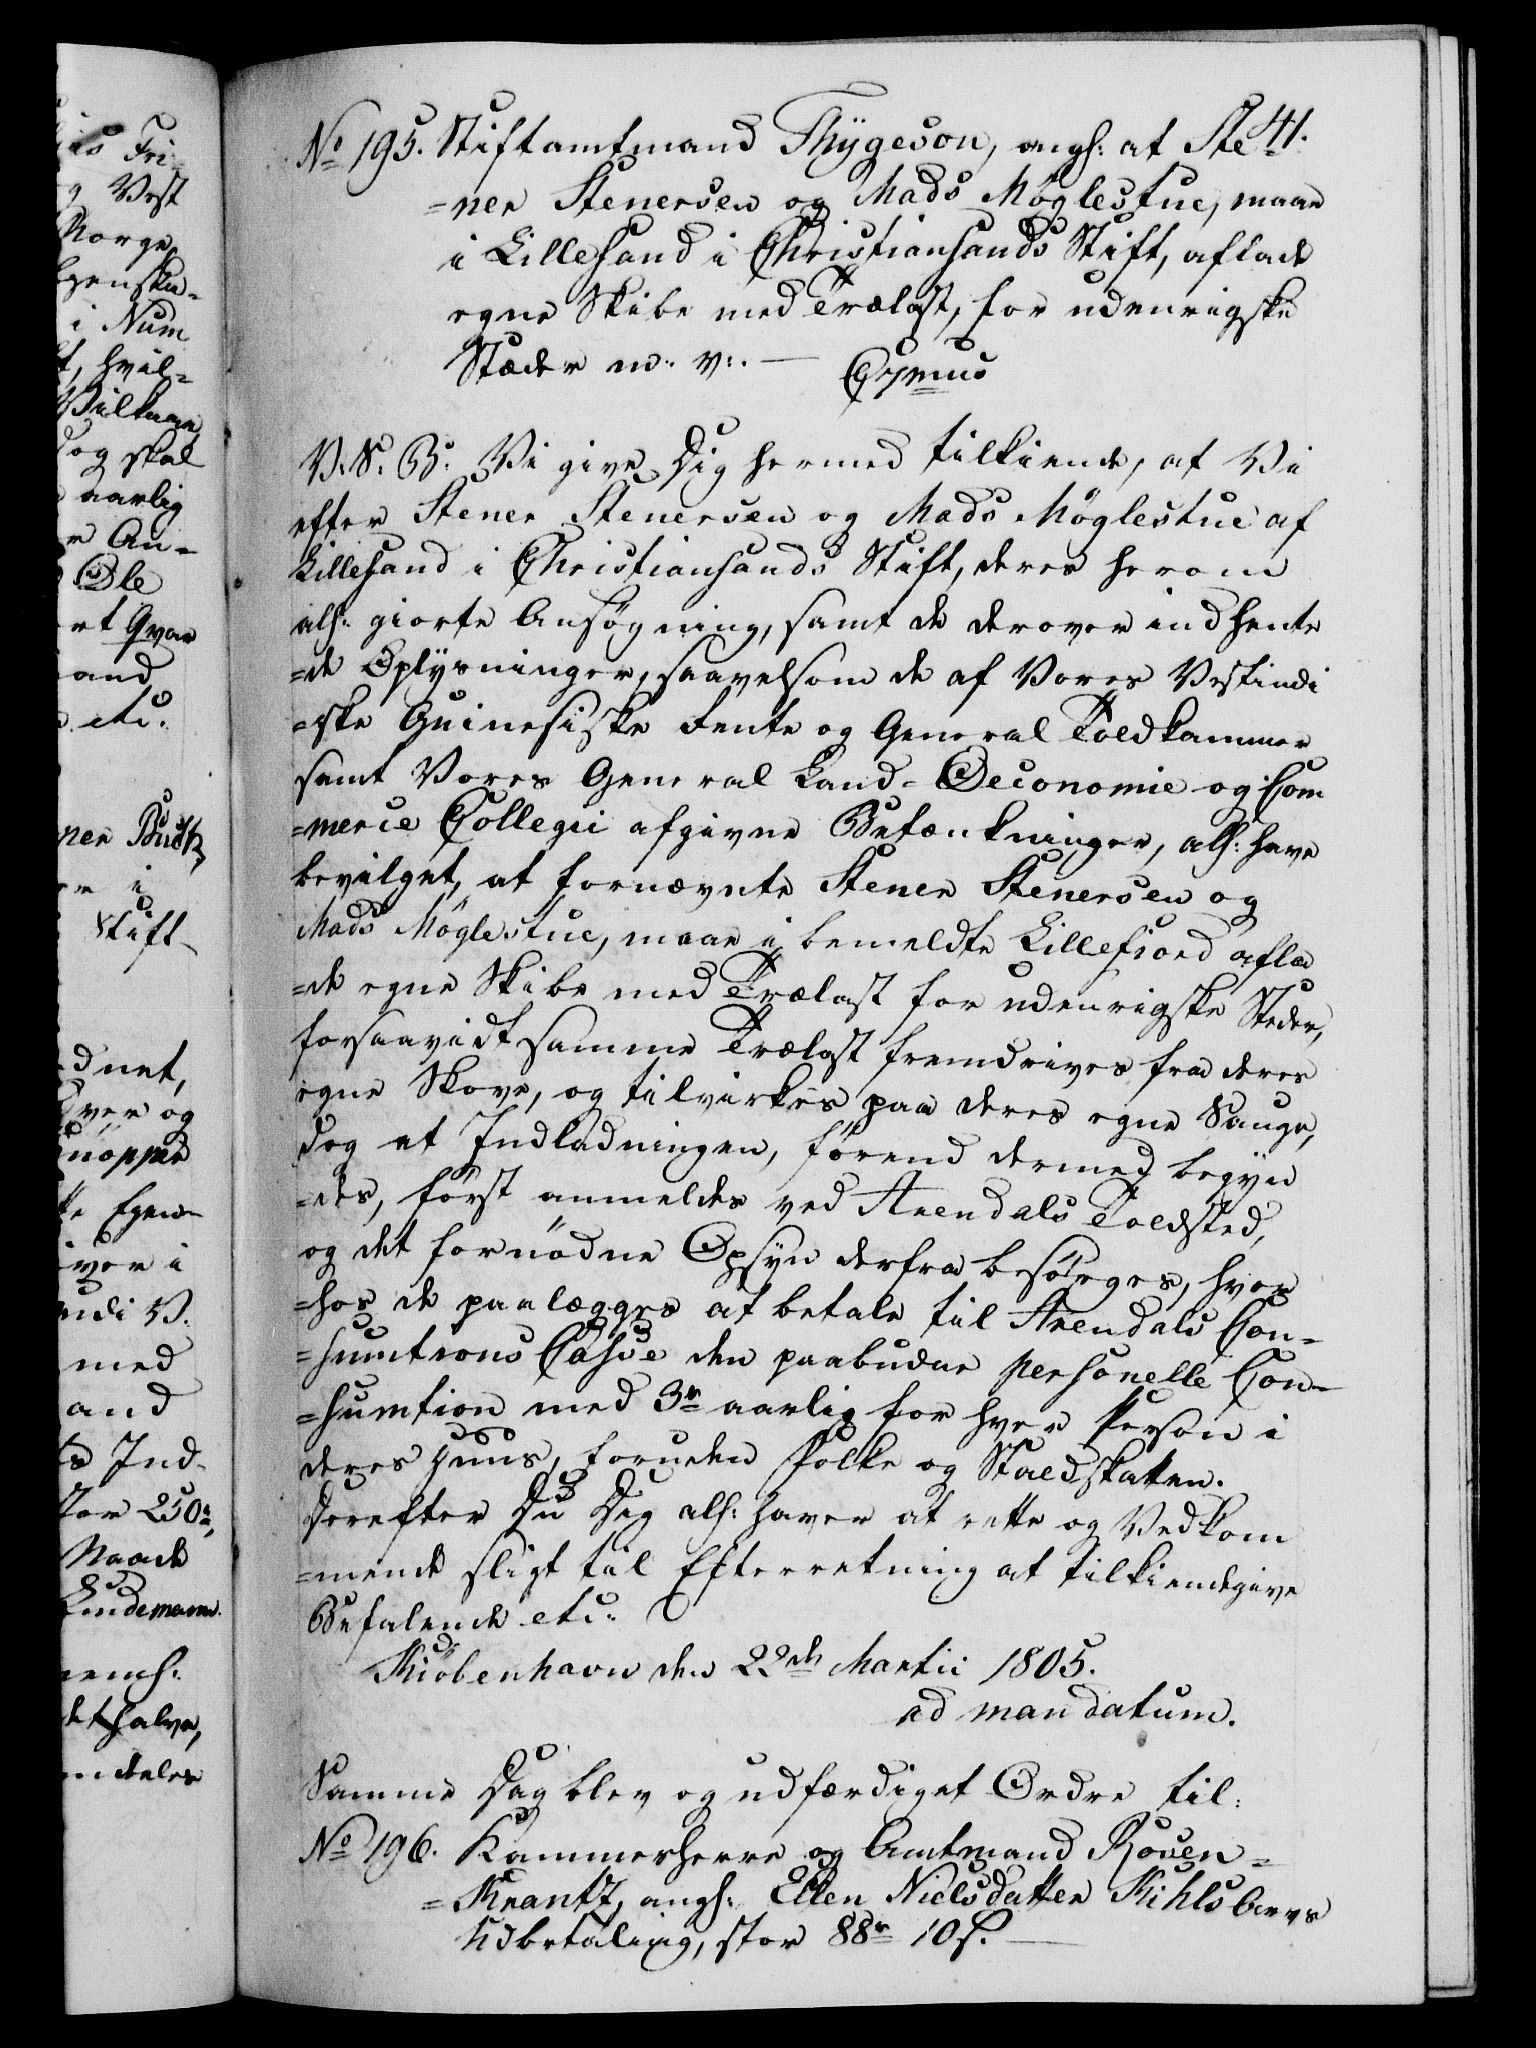 41.
No 195. Stiftamtmand Thÿgeson, angl: at Ste
=ner Stenersen og Mads Möglestue, maae
i Lillesand i Christiansands Stift, aflade
egne Skibe med Trælast, for udenrigske
Stæder m: v:. —
V. S. B: Vi give Dig hermed tilkiende, at Vi
efter Stener Stenersen og Mads Möglestue af
Lillesand i Christiansands Stift, deres herom
all: giorte Ansögning, samt de derover indhente
=de Oplysninger, saavelsom de af Vores Vestindi
=ske Guinesiske Rente og General Toldkammer
samt Vores General Land-Oeconomie og Com
=merce Collegii afgivne Betænkninger, all: have
bevilget, at fornævnte Stener Stenersen og
Mads Möglestue, maae i bemeldte Lillefiord afla
=de egne Skibe med Trælast for udenrigske Steder,
forsaavidt samme Trælast fremdrives fra deres
egne Skove, og tilvirkes paa deres egne Sauge,
dog at Indladningen, förend dermed begyn
=des, först anmeldes ved Arendals Toldsted,
og det fornödne Opsÿn derfra besörges, hvor
=hos de paalægges at betale til Arendals Con-
=sumtions Casse den paabudne personelle Con-
=sumtion med 3r aarlig for hver Person i
deres Huus, foruden Folke og Staldskatten.
Derefter Du Dig all: haver at rette og Vedkom
=mende sligt til Efterretning at tilkiendegive
Befalende etc:
Kiöbenhavn den 22de Martii 1805.
ad mandatum.
Samme Dag blev og udfærdiget Ordre til:
No 196. Kammerherre og Amtmand Rosen-
=Krantz, angl: Ellen Nielsdatter Kihls Arvs
Udbetaling, stor 88r 10s. —